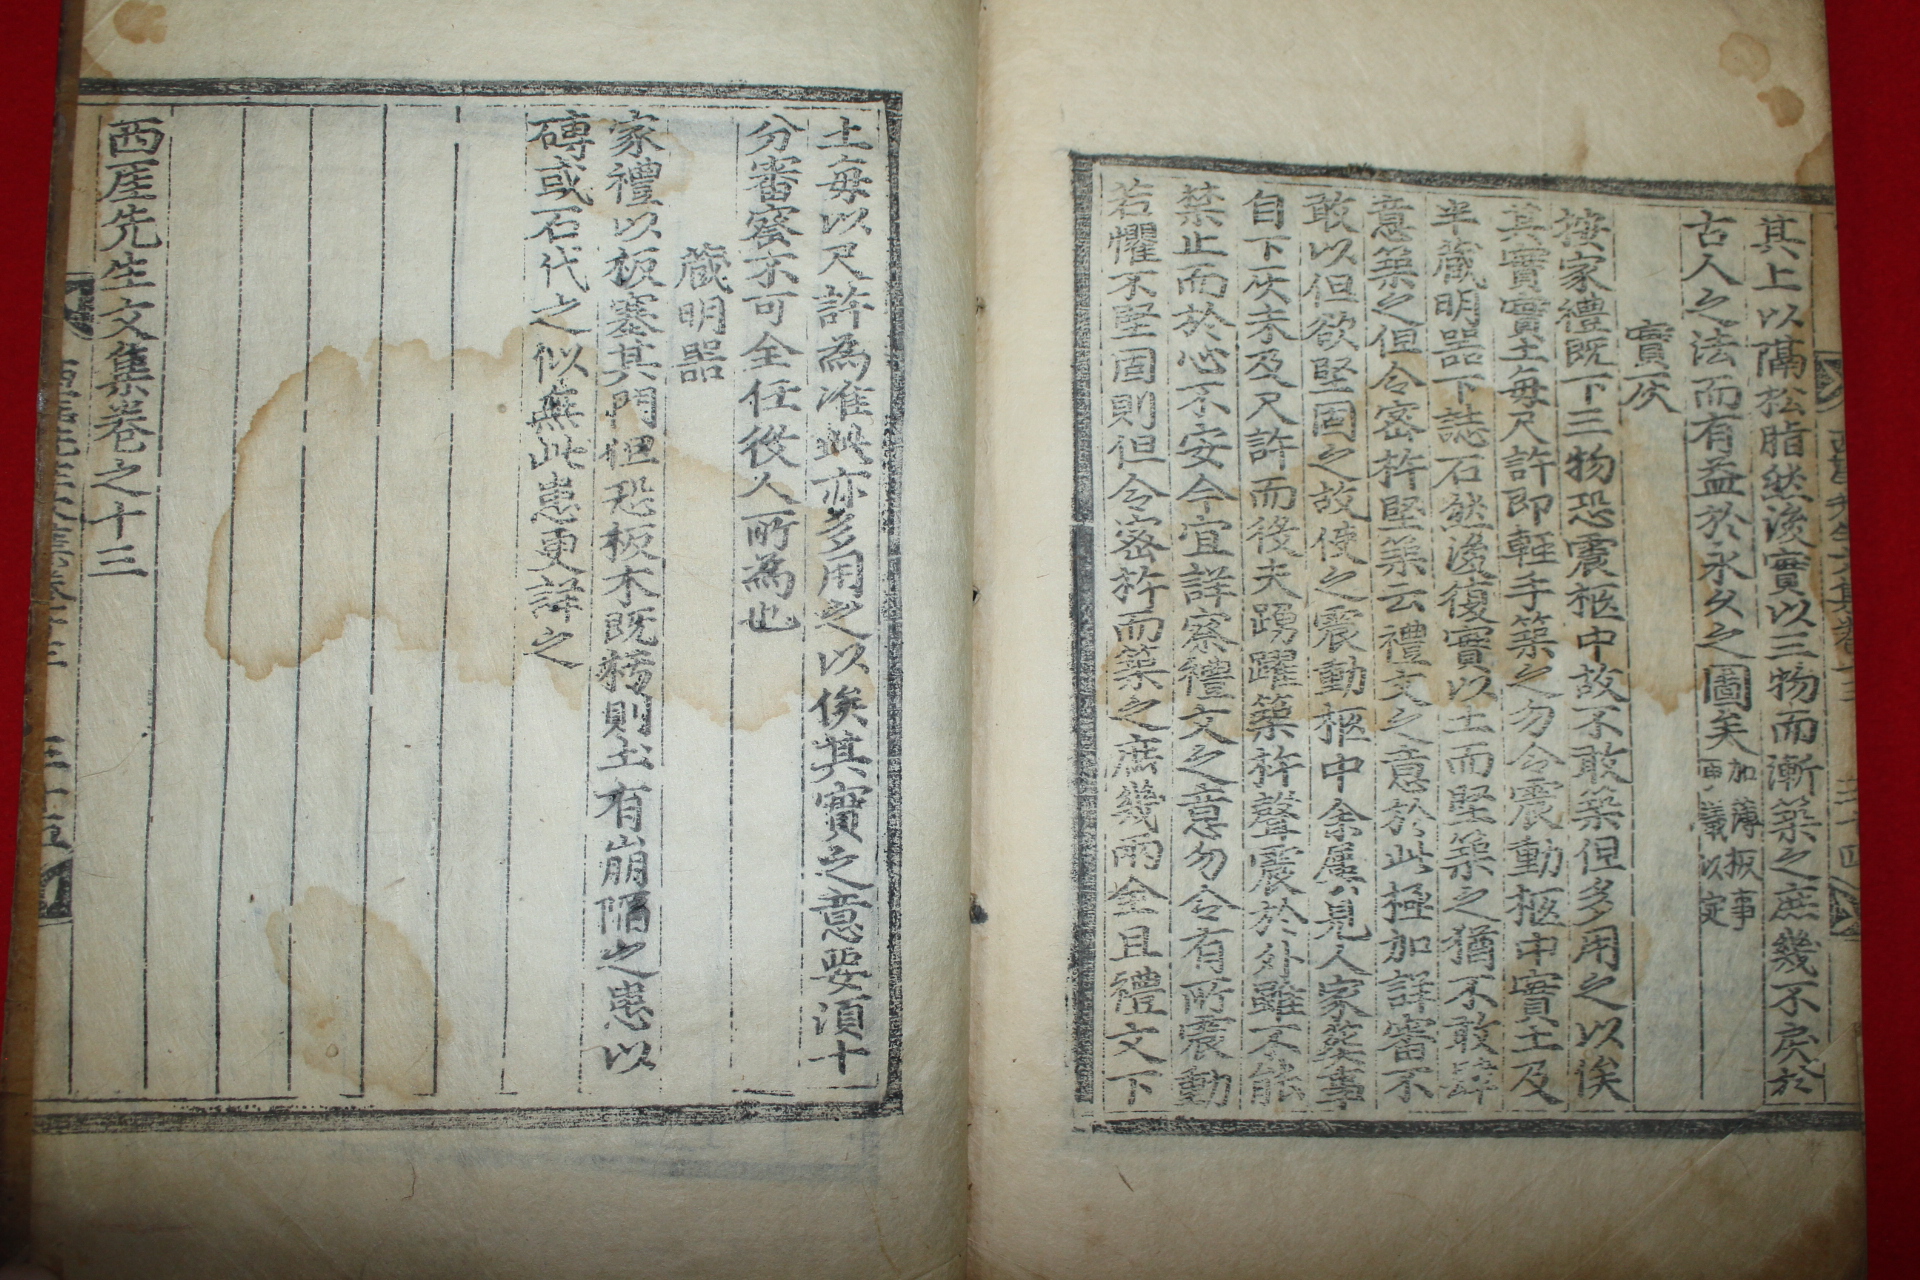 其上以隔松脂然後實以三物而漸築之庶幾不戾於
古人之法而有益於永久之圖矣加薄板事更議以定
實灰
按家禮既下三物恐震柩中故不敢築但多用之以俟
其實實土每尺許即輕手築之勿令震動柩中實土及
半藏明器下誌石然後復實以土而堅築之猶不敢肆
意築之但令密杵堅築云禮文之意於此極加詳審不
敢以但欲堅固之故使之震動柩中余屢見人家葬事
自下灰未及尺許而役夫踴躍築杵聲震於外雖不能
禁止而於心不安今宜詳察禮文之意勿令有所震動
若懼不堅固則但令密杵而築之庶幾兩全且禮文下
土每以尺許為准此亦多用之以俟其實之意要須十
分審密不可全任役人所為也
藏明器
家禮以板塞其門但恐板木既朽則土有崩陷之患以
磚或石代之似無此患更詳之
西厓先生文集卷之十三